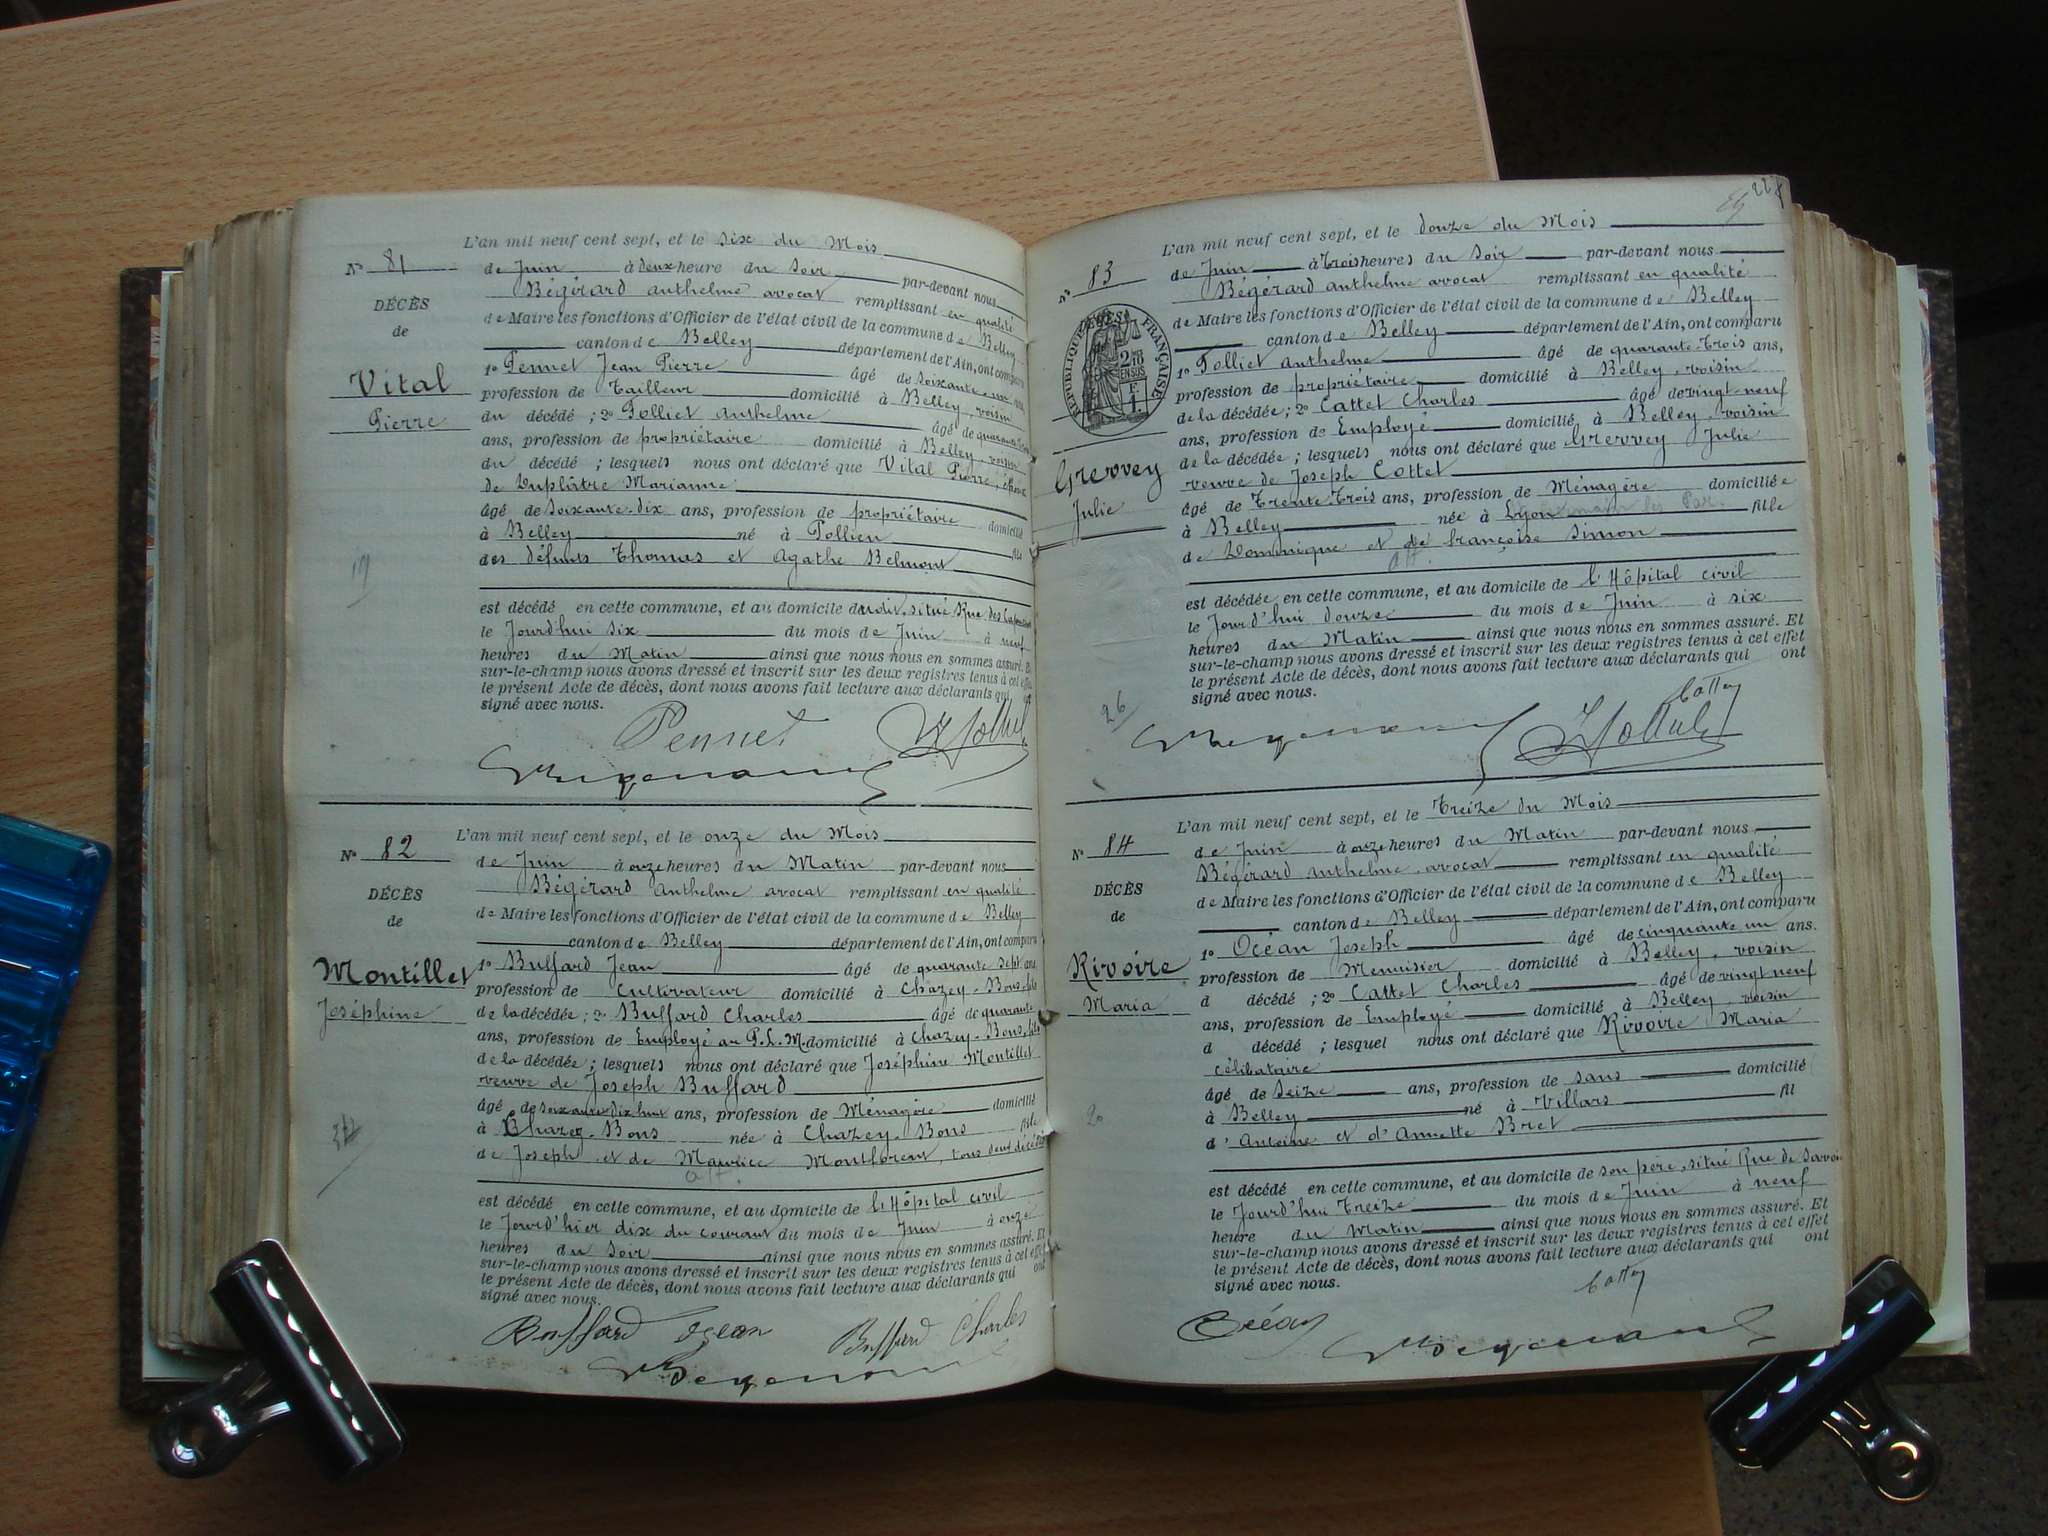 L'an mil neuf cent sept, et le six du Mois
N° 81
de Juin à deux heure du Soir par-devant nous
Bégérard anthelme avocat remplissant en qualité
DÉCÈS
de Maire les fonctions d'Officier de l'état civil de la commune de Belley
de
canton de Belley département de l'Ain, ont comparu
1° Pennet Jean Pierre âgé de soixante un ans,
Vital
profession de Tailleur domicilié à Belley, voisin
Pierre
du décédé; 2° Tolliet anthelme âgé de quarante
ans, profession de propriétaire domicilié à Belley, voisin
du décédé; lesquels nous ont déclaré que Vital Pierre, époux
de Duplâtre Marianne
âgé de soixante-dix ans, profession de propriétaire domicilié
à Belley né à Pollieu fils
des défunts Thomas et Agathe Belmont
est décédé en cette commune, et au domicile dudit, situé Rue des
le Jourd'hui six du mois de Juin à neuf
heures du Matin ainsi que nous nous en sommes assuré. Et
sur-le-champ nous avons dressé et inscrit sur les deux registres tenus à cet effet
le présent Acte de décès, dont nous avons fait lecture aux déclarants qui ont
signé avec nous.
Pennet
L'an mil neuf cent sept, et le onze du Mois
N° 82
de Juin à onze heures du Matin par-devant nous
Bégérard anthelme avocat remplissant en qualité
DÉCÈS
de Maire les fonctions d'Officier de l'état civil de la commune de Belley
de
canton de Belley département de l'Ain, ont comparu
Montillet
1° Buffard Jean âgé de quarante sept ans,
profession de Cultivateur domicilié à Chazey-Bons, fils
Joséphine
de la décédée; 2° Buffard Charles âgé de quarante
ans, profession de Employé au P.L.M. domicilié à Chazey-Bons, fils
de la décédée; lesquels nous ont déclaré que Joséphine Montillet
veuve de Joseph Buffard
âgé de soixante dix huit ans, profession de Ménagère domicilié
à Chazey-Bons née à Chazey-Bons fille
de Joseph et de Maurice Montlorent, tous deux décédés
est décédé en cette commune, et au domicile de l'Hôpital civil
le Jourd'hier dix du courant du mois de Juin à onze
heures du Soir ainsi que nous nous en sommes assuré. Et
sur-le-champ nous avons dressé et inscrit sur les deux registres tenus à cet effet
le présent Acte de décès, dont nous avons fait lecture aux déclarants qui ont
signé avec nous.
Buffard Jean Buffard Charles
L'an mil neuf cent sept, et le douze du Mois
N° 83
de Juin à trois heures du Soir par-devant nous
Bégérard anthelme avocat remplissant en qualité
de Maire les fonctions d'Officier de l'état civil de la commune de Belley
RÉPUBLIQUE FRANÇAISE
canton de Belley département de l'Ain, ont comparu
1° Tolliet anthelme âgé de quarante-trois ans,
profession de propriétaire domicilié à Belley, voisin
de la décédée; 2° Cattet Charles âgé de vingt neuf
ans, profession de Employé domicilié à Belley, voisin
de la décédée; lesquels nous ont déclaré que Grevvey Julie
Grevvey
veuve de Joseph Cottet
Julie
âgé de Trente-Trois ans, profession de Ménagère domiciliée
à Belley née à Lyon fille
de Dominique et de françoise Simon
est décédée en cette commune, et au domicile de l'Hôpital civil
le Jourd'hui douze du mois de Juin à six
heures du Matin ainsi que nous nous en sommes assuré. Et
sur-le-champ nous avons dressé et inscrit sur les deux registres tenus à cet effet
le présent Acte de décès, dont nous avons fait lecture aux déclarants qui ont
signé avec nous.
26
L'an mil neuf cent sept, et le Treize du Mois
N° 84
de Juin à onze heures du Matin par-devant nous
Bégérard anthelme, avocat remplissant en qualité
DÉCÈS
de Maire les fonctions d'Officier de l'état civil de la commune de Belley
de
canton de Belley département de l'Ain, ont comparu
1° Océan Joseph âgé de cinquante un ans.
Rivoire
profession de Menuisier domicilié à Belley, voisin
Maria
d décédé; 2° Cattet Charles âgé de vingt neuf
ans, profession de Employé domicilié à Belley, voisin
d décédé; lesquel nous ont déclaré que Rivoire Maria
célibataire
âgé de Seize ans, profession de sans domicilié
à Belley né à Villars fil
d'Antoine et d'Annette Bret
est décédé en cette commune, et au domicile de son père, situé Rue de Savoie
le Jourd'hui Treize du mois de Juin à neuf
heure du Matin ainsi que nous nous en sommes assuré. Et
sur-le-champ nous avons dressé et inscrit sur les deux registres tenus à cet effet
le présent Acte de décès, dont nous avons fait lecture aux déclarants qui ont
signé avec nous.
Océan